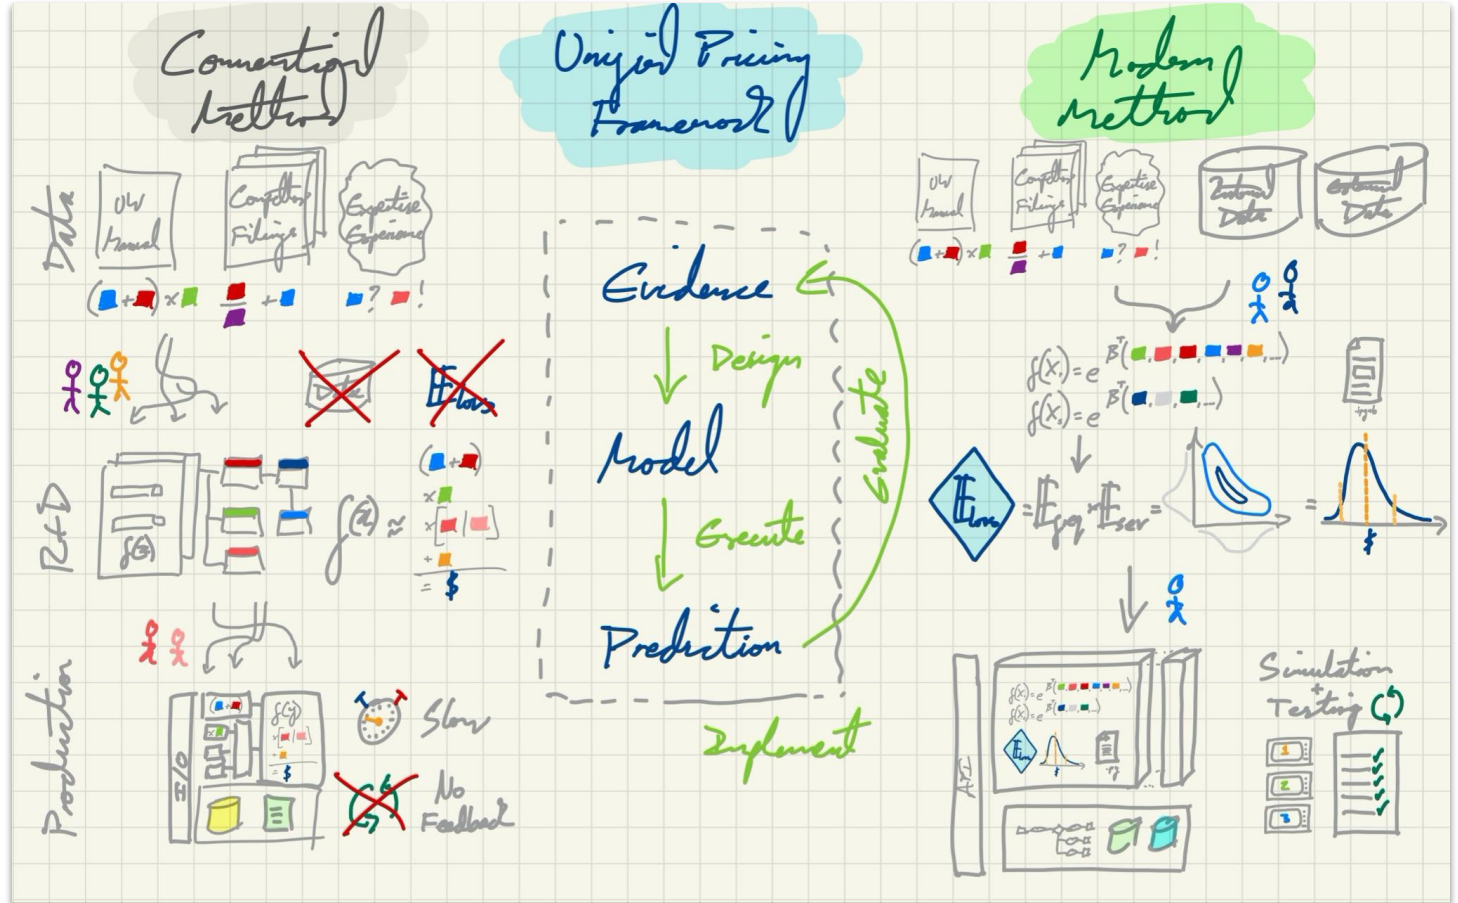 Conventional
Method
Unified Pricing
Framework
Modern
Method
Data
UW
Manual
Competitor
Filings
Expertise
Experience
( + ) ×
+
? !
Data
𝔼 Loss
R+D
f(x)
f(x) ≈
( + )
×
× [ | ]
+
= $
Production
I/O
( + )
×
f(y)
× [ | ]
+
= $
Slow
No
Feedback
Evidence
Design
Model
Execute
Prediction
Evaluate
Implement
UW
Manual
Competitor
Filings
Expertise
Experience
Internal
Data
External
Data
( + ) ×
+
? !
f(X₁) = e βᵀ( , , , , , , ...)
f(X₂) = e βᵀ( , , , ...)
𝔼 Loss = 𝔼 freq × 𝔼 sev = =
$
API
f(X₁) = e βᵀ( , , , , , , ...)
f(X₂) = e βᵀ( , , , ...)
𝔼 Loss
$
Simulation
+
Testing
1
2
3